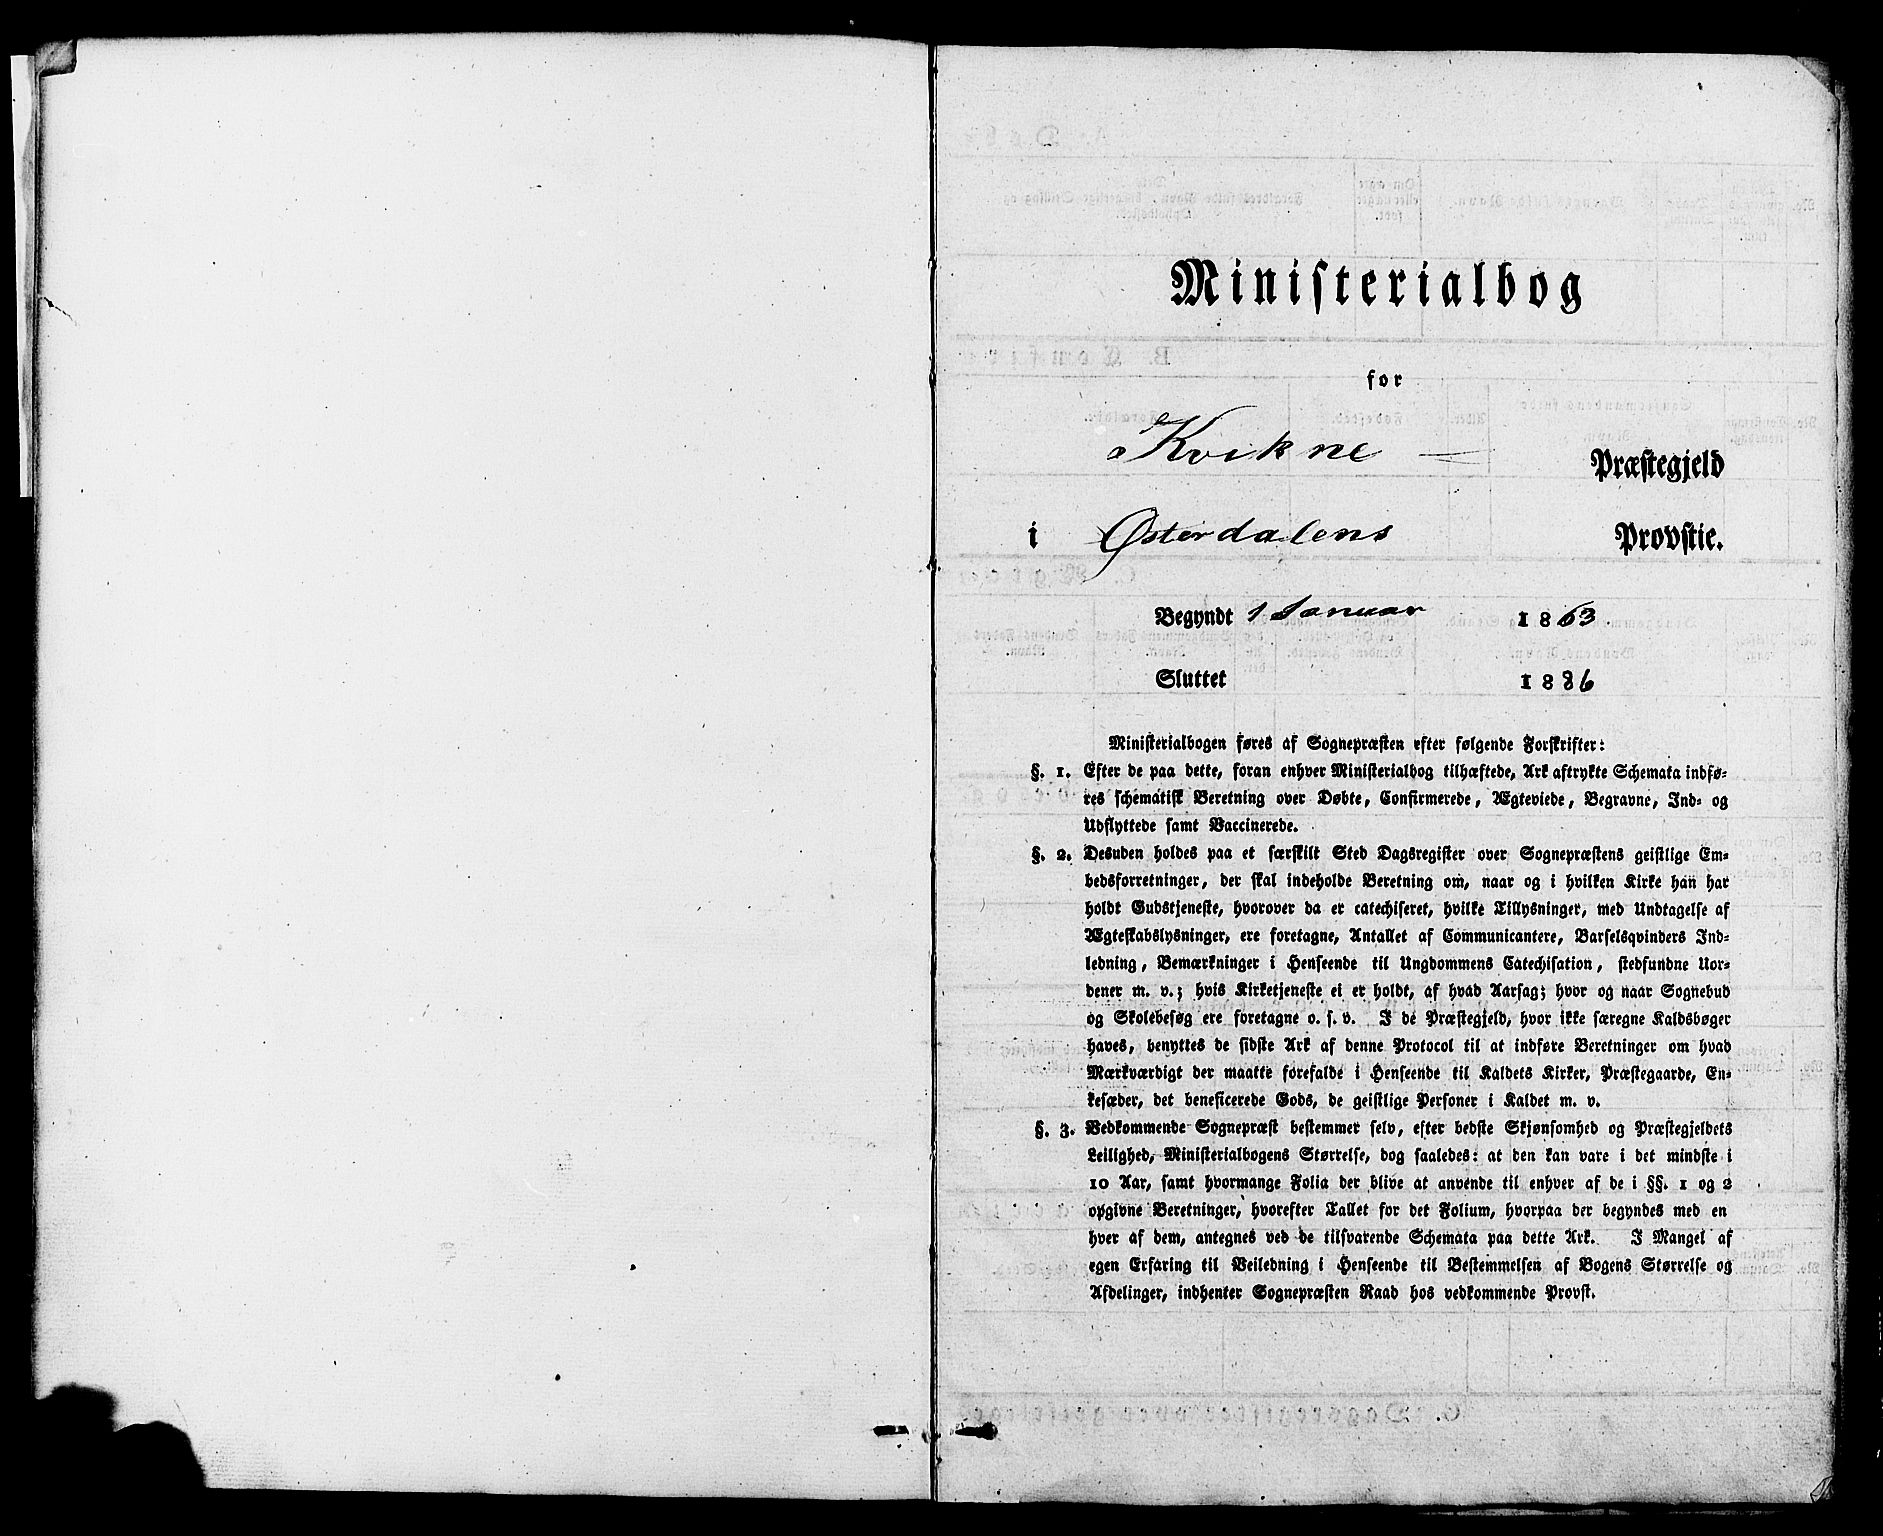 Ministerialbog
for
Kvikne Præstegjeld
i Østerdalens Provstie.
Begyndt 1 Januar 1863.
Sluttet 1886
Ministerialbogen føres af Sognepræsten efter følgende Forskrifter:
§. 1. Efter de paa dette, foran enhver Ministerialbog tilhæftede, Ark aftrykte Schemata indfø-
res schematisk Beretning over Døbte, Confirmerede, Ægteviede, Begravne, Ind- og
Udflyttede samt Vaccinerede.
§. 2. Desuden holdes paa et særskilt Sted Dagsregister over Sognepræstens geistlige Em-
bedsforretninger, der skal indeholde Beretning om, naar og i hvilken Kirke han har
holdt Gudstjeneste, hvorover da er catechiseret, hvilke Tillysninger, med Undtagelse af
Ægteskabslysninger, ere foretagne, Antallet af Communicantere, Barselsqvinders Ind-
ledning, Bemærkninger i Henseende til Ungdommens Catechisation, stedfundne Uor-
dener m. v.; hvis Kirketjeneste ei er holdt, af hvad Aarsag; hvor og naar Sognebud
og Skolebesøg ere foretagne o. s. v. I de Præstegjeld, hvor ikke særegne Kaldsbøger
haves, benyttes de sidste Ark af denne Protocol til at indføre Beretninger om hvad
Mærkværdigt der maatte forefalde i Henseende til Kaldets Kirker, Præstegaarde, En-
kesæder, det beneficerede Gods, de geistlige Personer i Kaldet m. v.
§. 3. Vedkommende Sognepræst bestemmer selv, efter bedste Skjønsomhed og Præstegjeldets
Leilighed, Ministerialbogens Størrelse, dog saaledes: at den kan vare i det mindste i
10 Aar, samt hvormange Folia der blive at anvende til enhver af de i §§. 1 og 2
opgivne Beretninger, hvorefter Tallet for det Folium, hvorpaa der begyndes med en
hver af dem, antegnes ved de tilsvarende Schemata paa dette Ark. I Mangel af
egen Erfaring til Veiledning i Henseende til Bestemmelsen af Bogens Størrelse og
Afdelinger, indhenter Sognepræsten Raad hos vedkommende Provst.